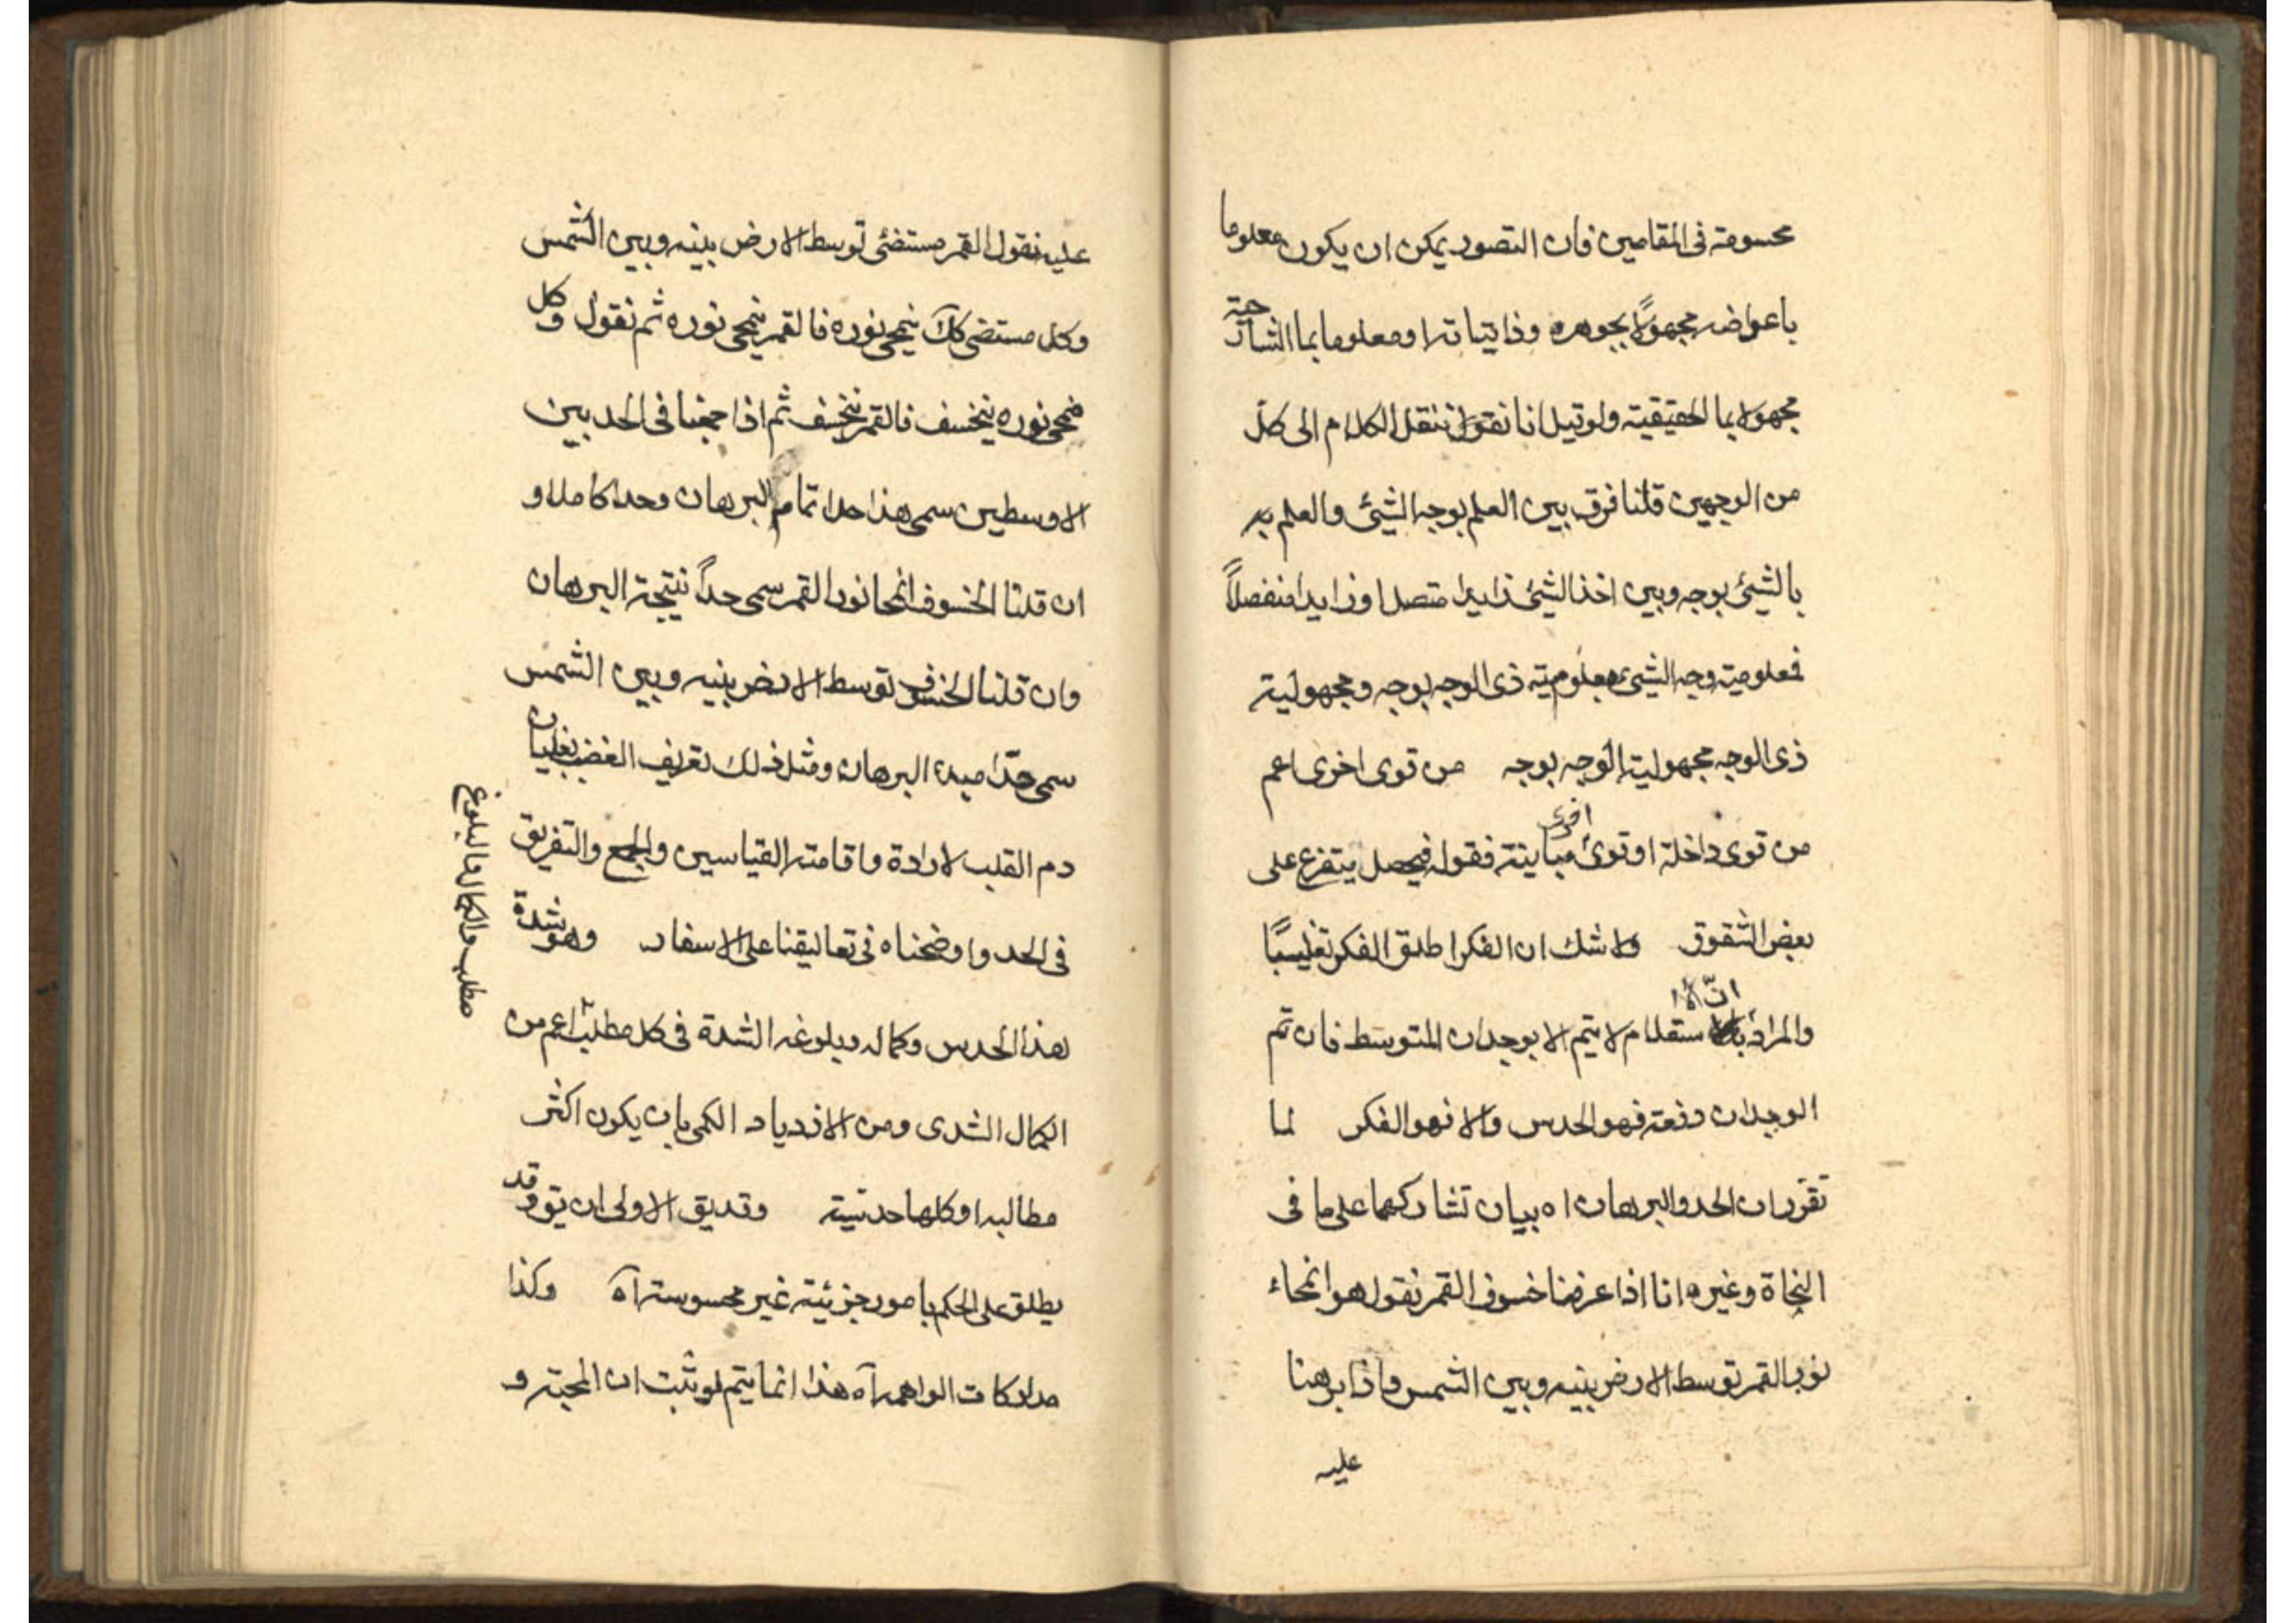 محسومة فى المقامين فان التصور يمكن ان يكون معلوما
باعواضه مجهولًا بجوهره وذاتياته او معلوما بما الشارحة
مجهولا بما الحقيقية ولو قيل انا نقول ننقل الكلام الى كلّ
من الوجهين قلنا فرق بين العلم بوجه الشيئ والعلم به
بالشيئ بوجه وبين اخذ الشيئ زايدا متصلا وزايدا منفصلاً
فمعلومية وجه الشيئ معلومية ذى الوجه بوجه ومجهولية
ذى الوجه مجهولية الوجه بوجه من قوى اخرى اعم
من قوى داخلة او قوى اخرى مباينة فقوله فيحصل يتفرع على
بعض الشقوق ولا شك ان الفكر اطلق الفكر تغليبًا
والمراد انّ الا ستعلام لا يتم الا بوجدان المتوسط فان تم
الوجدان دفعة فهو الحدس والا فهو الفكر لما
تقرر ان الحد والبرهان اه بيان تشاركهما على ما فى
النجاة وغيره انا اذا عرفنا خسوف القمر نقول هو انمحاء
نور القمر توسط الارض بينه وبين الشمس واذا برهنا
عليه
عليه نقول القمر مستضئى توسط الارض بينه وبين الشمس
وكل مستضى كك ينمحى نوره فالقمر ينمحى نوره ثم نقول وكل
منمحى نوره ينخسف فالقمر ينخسف ثم اذا جمعنا فى الحد بين
الاوسطين سمى هذا حدا تمام البرهان وحدا كاملا و
ان قلنا الخسوف انمحا نور القمر سمى حداً نتيجة البرهان
وان قلنا الخسوف توسط الارض بينه وبين الشمس
سمى حدّا مبدء البرهان ومثل ذلك تعريف الغضب بغليان
دم القلب لارادة واقامته القياسين والجمع والتفريق
فى الحد واوضحناه فى تعاليقنا على الاسفار وهو شدة
هذا الحدس وكماله وبلوغه الشدة فى كل مطلب اعم من
الكمال الشدى ومن الازدياد الكمى بان يكون اكثر
مطالبه او كلها حدسية وقد يق الاولى ان يق وقد
يطلق على الحكم بامور جزئية غير محسوسة آه وكذا
مدركات الواهمه آه هذا انما يتم لو ثبت ان المحبة و
مطلب والكمال والبلوغ